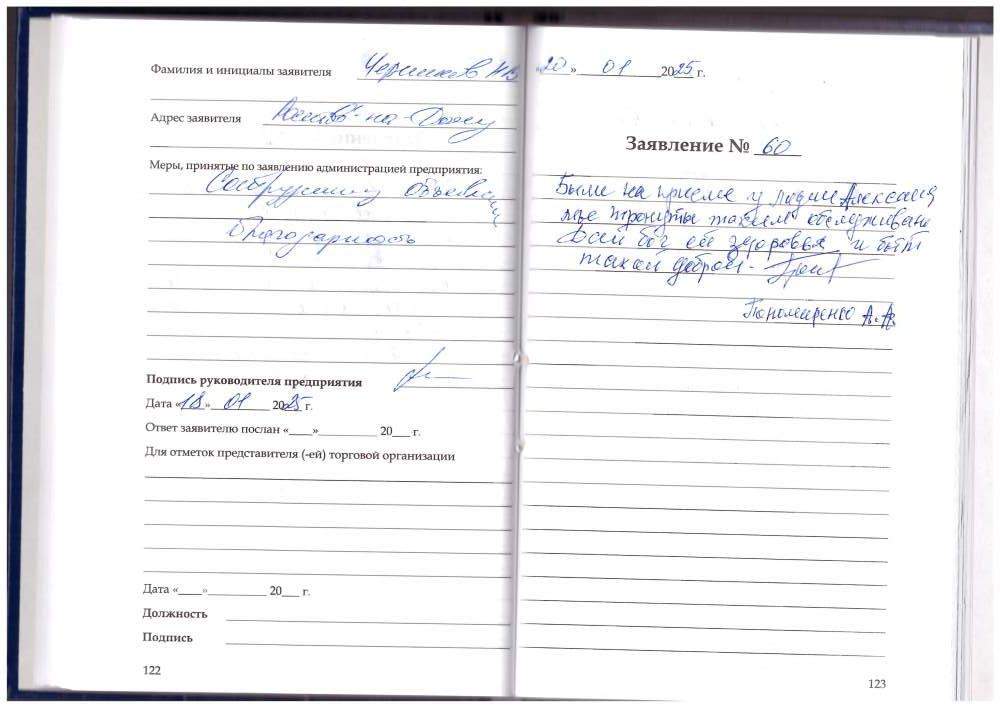 Фамилия и инициалы заявителя
Адрес заявителя Ростов-на-Дону
Меры, принятые по заявлению администрацией предприятия:
Сотруднику объявлена
благодарность
Подпись руководителя предприятия
Дата «18» 01 2025 г.
Ответ заявителю послан «____»__________ 20___ г.
Для отметок представителя (-ей) торговой организации
Дата «____»__________ 20___ г.
Должность
Подпись
122
«20» 01 2025 г.
Заявление № 60
Были на приеме у Лидии Алексан
мы тронуты таким обслуживан
Дай бог ей здоровья и быть
такой доброй-
Пономаренко А.А.
123